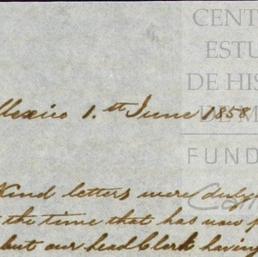 CENT
ESTU
DE HIS
DE M
FUND
Mexico 1.st June 1858
Kind letters were duly
the time that has now p
but our head Clerk having